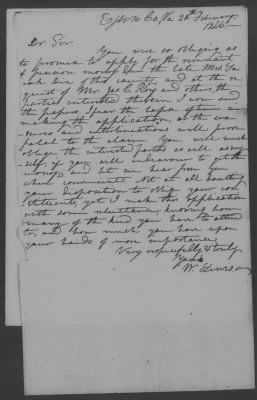 Essex Co, Va. 26th February
1846
Dr. Sir
You were so obliging as
to promise to apply for the
of pension money due the late Mrs
of this county and at the re
quest of Mr. Jas. C. Roy and others, the
parties interested therein I now send
the papers. I fear the lapse of time in
making the application, and the era
sures and interlineations will prove
fatal to the claim. You will much
oblige the interested parties as well as my
self, if you will endeavour to get the
money, and let me hear from you
when convenient. Not at all doubting
your disposition to oblige your con
stituents, yet I make this application
with some reluctance, knowing how
many of the kind you have to attend
to, and how much you have upon
your hands of more importance.
Very respectfully & truly
Yours
W.